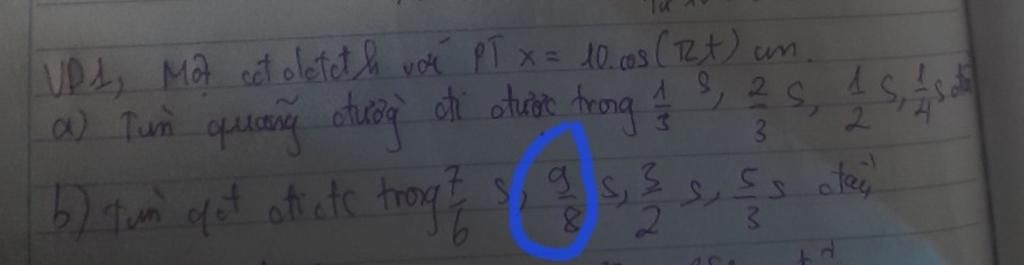 VD1, Một cđ dđđh với PT x = 10.cos(πt) cm.
a) Tìm quãng đường đi được trong 1/3 s, 2/3 s, 1/2 s, 1/4 s đầu
b) Tìm qđ đi đc trong 7/6 s, 9/8 s, 3/2 s, 5/3 s đầu